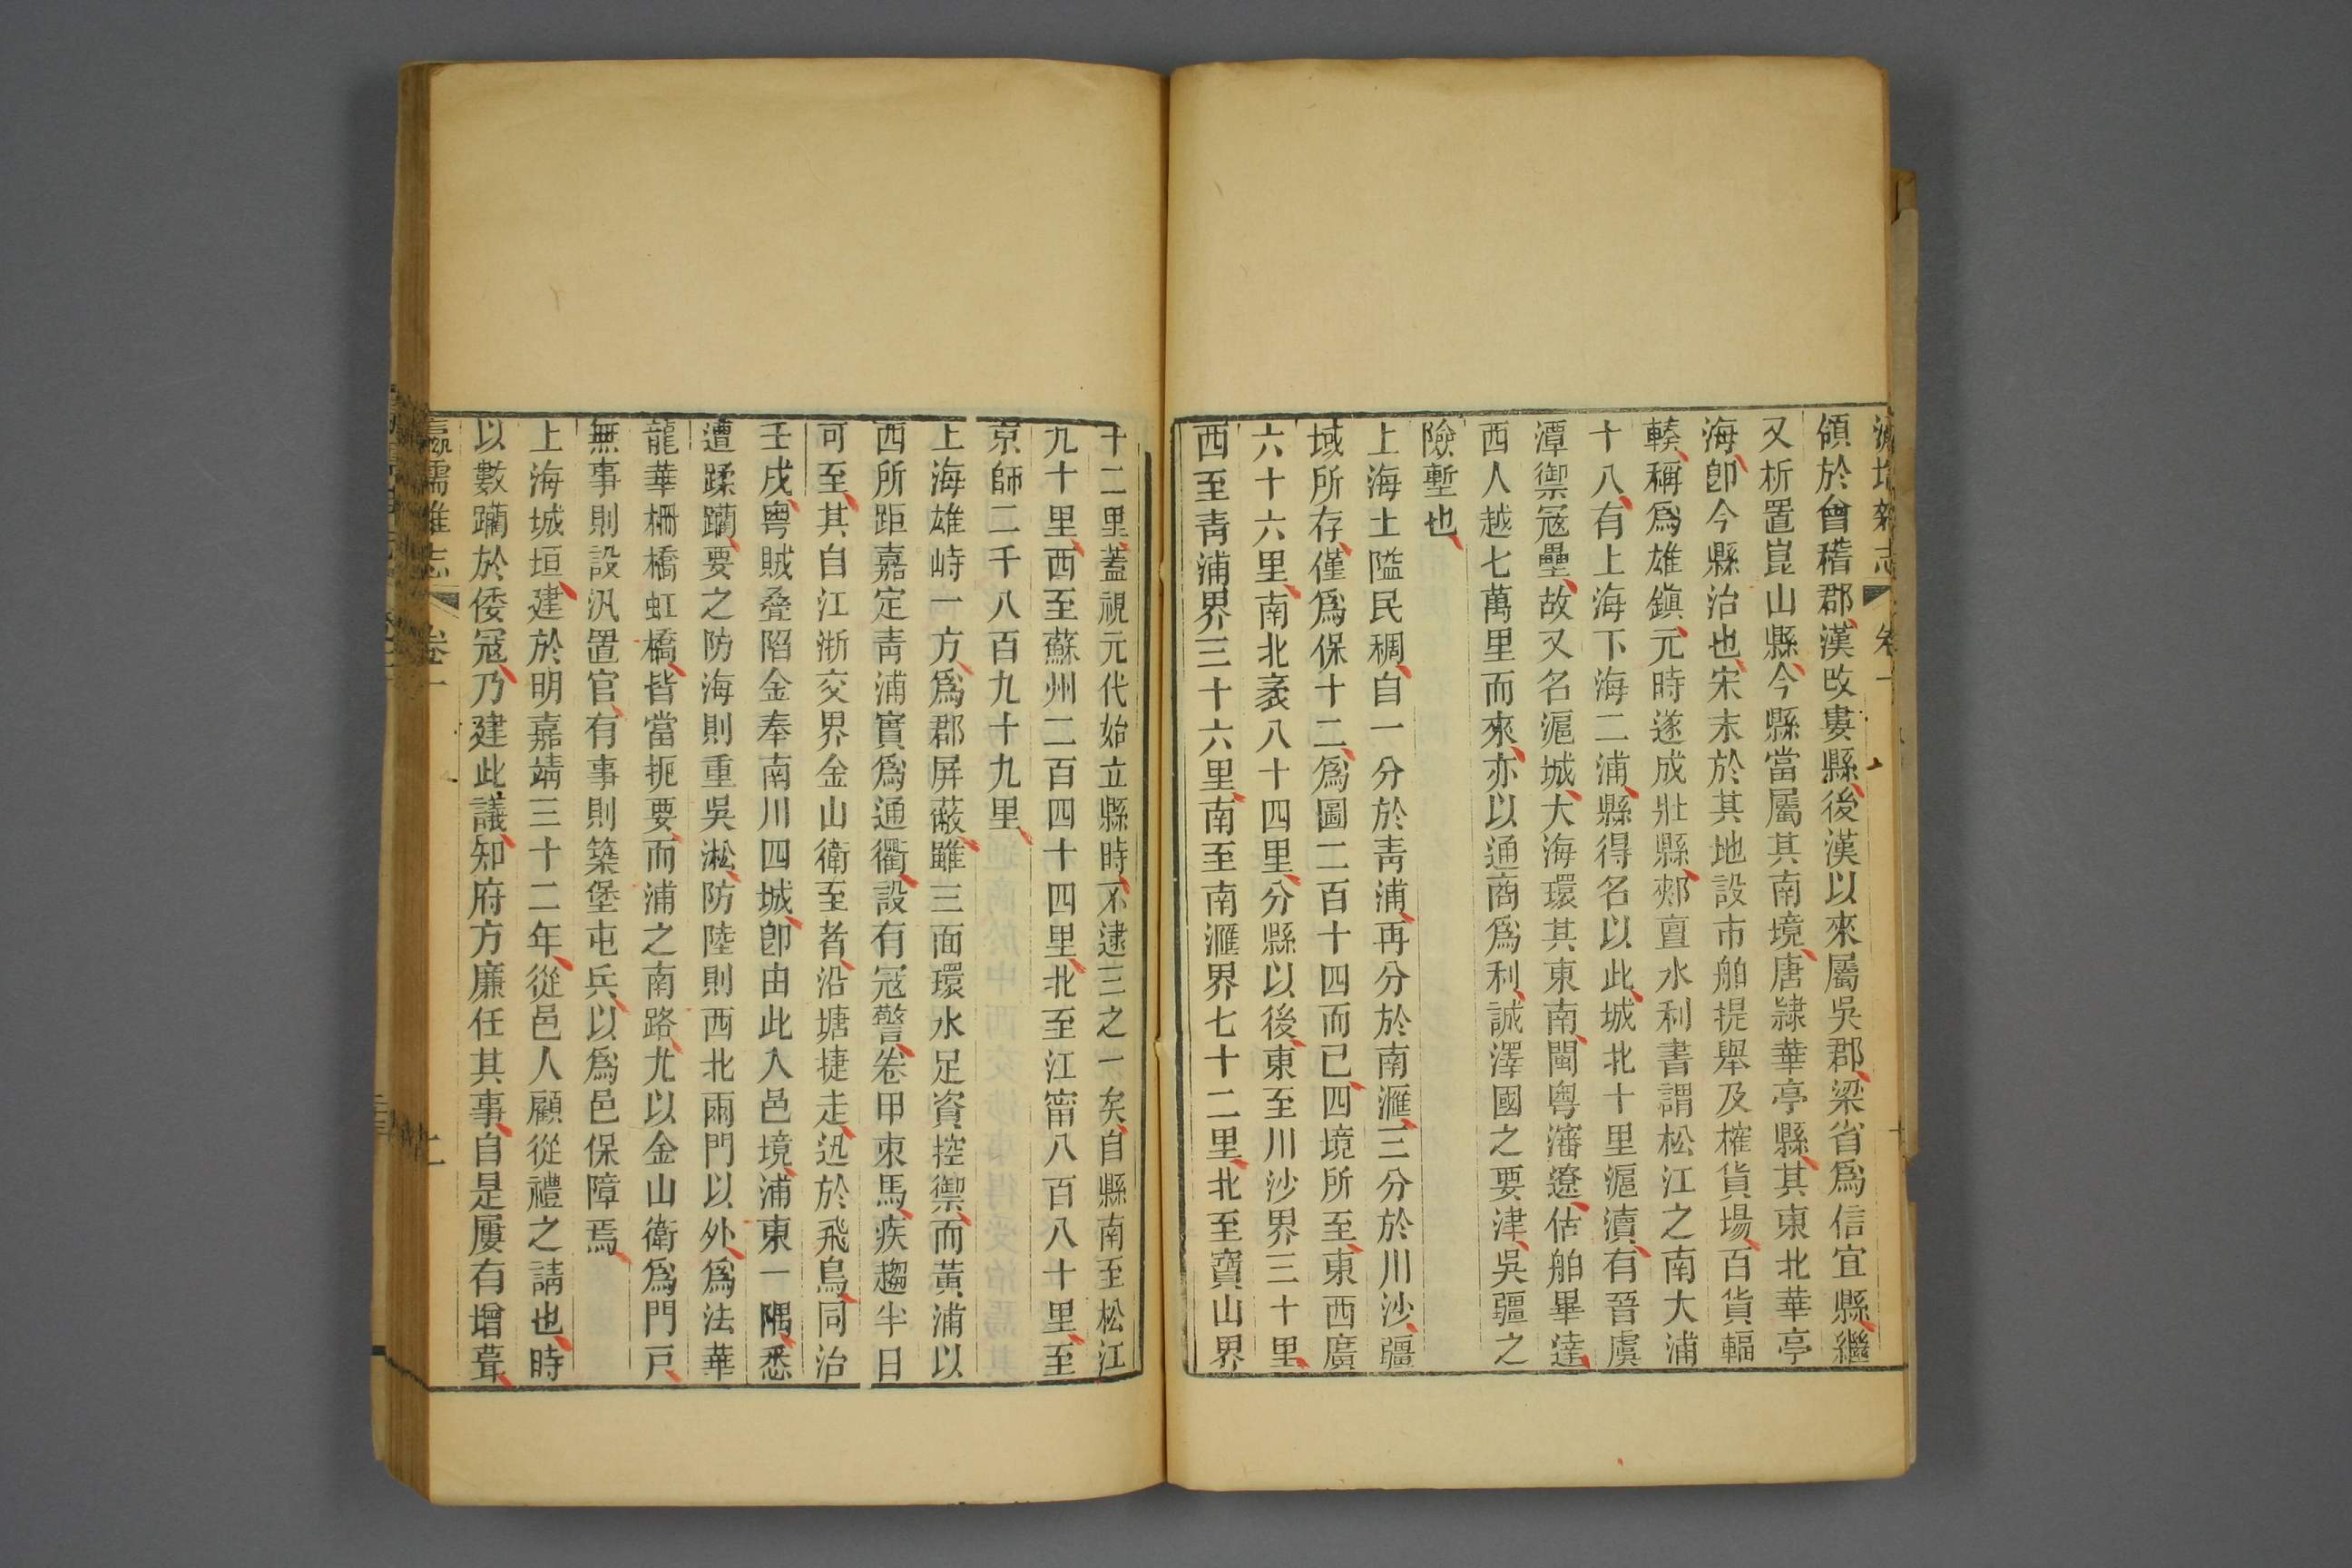 雜志 卷一
領於會稽郡漢改婁縣後漢以來屬吳郡梁省爲信宜縣繼
又析置崑山縣今縣當屬其南境唐隷華亭縣其東北華亭
海卽今縣治也宋末於其地設市舶提舉及榷貨場百貨輻
輳稱爲雄鎭元時遂成壯縣郟亶水利書謂松江之南大浦
十八有上海下海二浦縣得名以此城北十里滬瀆有晉虞
潭禦寇壘故又名滬城大海環其東南閩粤瀋遼估舶畢達
西人越七萬里而來亦以通商爲利誠澤國之要津吳疆之
險塹也
上海土隘民稠自一分於靑浦再分於南滙三分於川沙疆
域所存僅爲保十二爲圖二百十四而已四境所至東西廣
六十六里南北袤八十四里分縣以後東至川沙界三十里
西至靑浦界三十六里南至南滙界七十二里北至寶山界
十二里蓋視元代始立縣時不逮三之一矣自縣南至松江
九十里西至蘇州二百四十四里北至江甯八百八十里至
京師二千八百九十九里
上海雄峙一方爲郡屏蔽雖三面環水足資控禦而黃浦以
西所距嘉定靑浦實爲通衢設有寇警卷甲束馬疾趨半日
可至其自江浙交界金山衛至者沿塘捷走迅於飛鳥同治
壬戌粤賊疊陷金奉南川四城卽由此入邑境浦東一隅悉
遭蹂躪要之防海則重吳淞防陸則西北兩門以外爲法華
龍華柵橋虹橋皆當扼要而浦之南路尤以金山衛爲門戸
無事則設汛置官有事則築堡屯兵以爲邑保障焉
上海城垣建於明嘉靖三十二年從邑人顧從禮之請也時
以數躪於倭寇乃建此議知府方廉任其事自是屢有增葺
瀛壖雜志 卷一 二